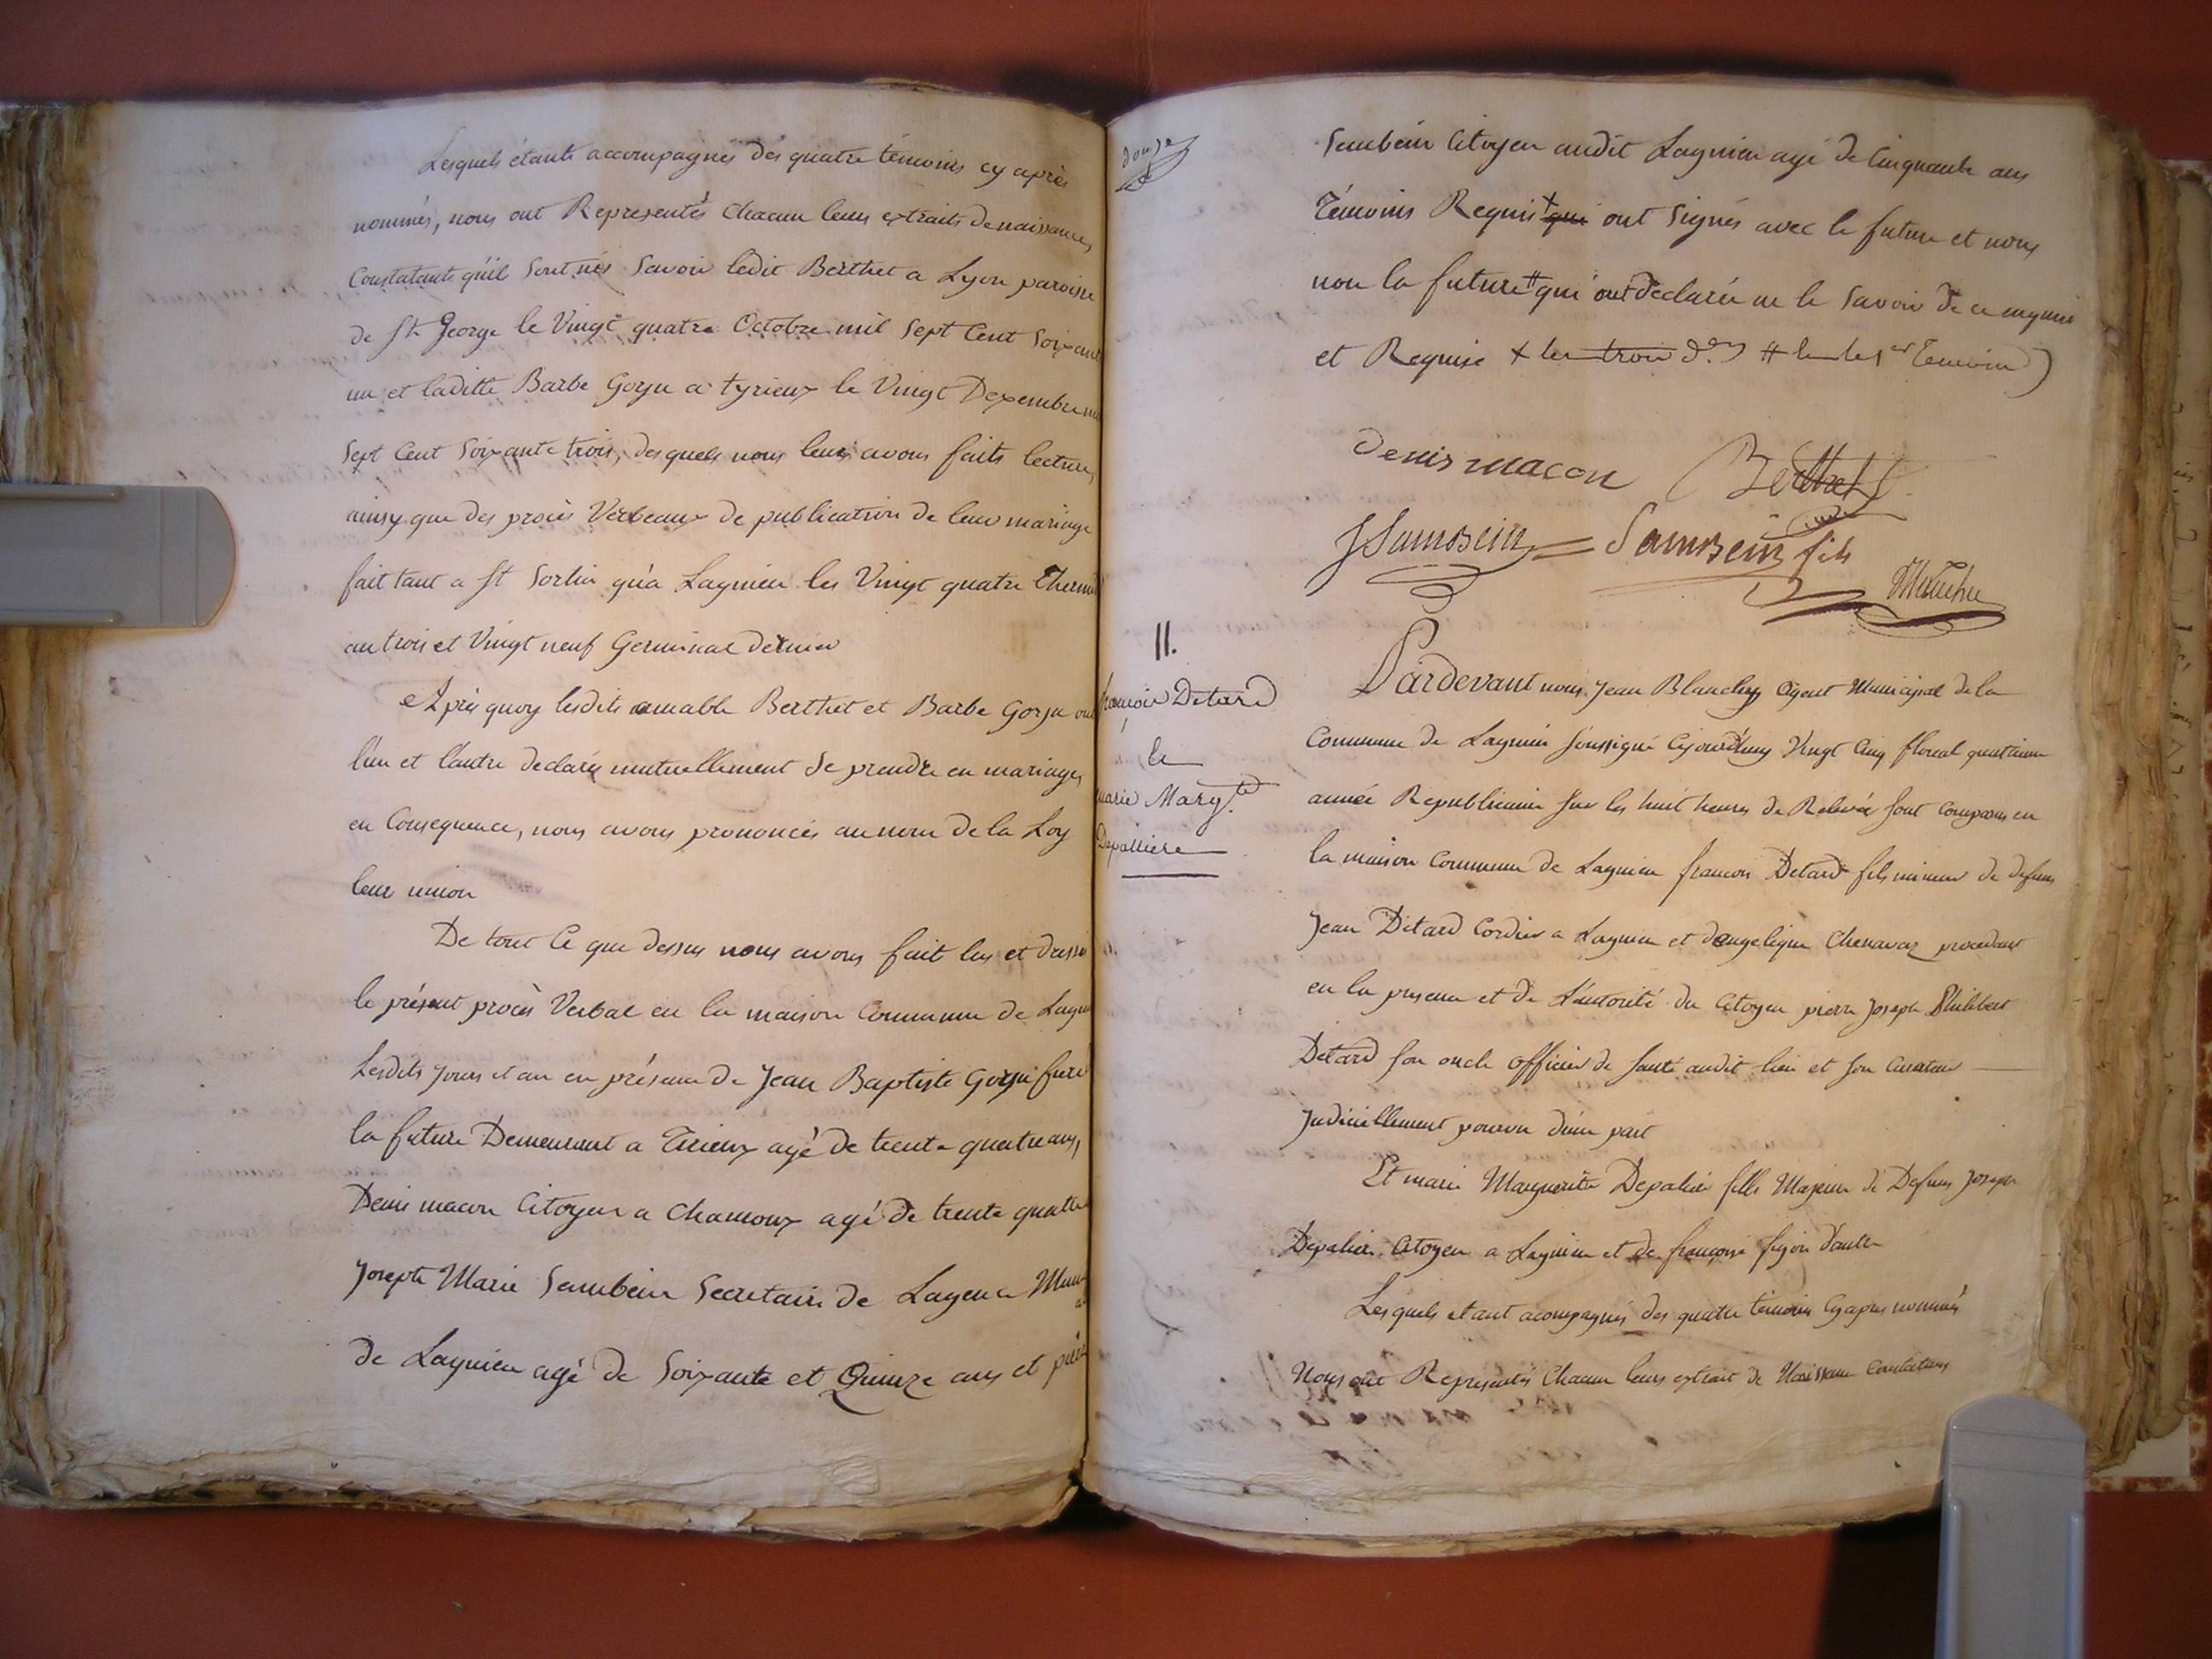 Lesquels étants accompagnés des quatre témoins cy après
nommés, nous ont Representés chacun leurs extraits de naissances
Constatants qu'il sont nés Savoir ledit Berthet a Lyon paroisse
de St George le Vingt quatre Octobre mil Sept Cent Soixante
un et laditte Barbe Gorju a tyrieux le Vingt Dexembre mil
Sept Cent Soixante trois, desquels nous leurs avons faits lecture,
ainsy que des procès Verbeaux de publication de leur mariage
fait tant a St Sorlin qu'a Lagnieu les Vingt quatre Thermi
an trois et Vingt neuf Germinal dernier
Après quoy lesdits amable Berthet et Barbe Gorju ont
l'un et l'autre declaré mutuellement se prendre en mariage,
en Consequence, nous avons prononcés au nom de la Loy
leur union
De tout Ce que dessus nous avons fait lus et dressé
le présent procès Verbal en la maison Commune de Lagni
Lesdits jours et an en présence de Jean Baptiste Gorju frere
la future Demeurant a Tirieux agé de trente quatre ans,
Denis macon Citoyen a Chamoux agé de trente quatre
Joseph Marie Sambein Secretaire de Lagence Muni
de Lagnieu agé de Soixante et Quinze ans et pier
douze
Sambein Citoyen audit Lagnieu agé de Cinquante ans
Témoins Requis + qui ont Signés avec le future et nous
non la future # qui ont declarée ne le Savoir de ce enquis
et Requise + les trois d. # le 1er Temoin
denis macon Berthet
JSambein Sambein fils
11.
francois Detard
&
marie Margte
Depalliere
Pardevant nous Jean Blanchy Agent Municipal de la
Commune de Lagnieu soussigné Cejourd'huy Vingt Cinq floreal quatrieme
année Republicaine Sur les huit heures de Relevée sont comparus en
la maison Commune de Lagnieu francois Detard fils mineur de defunt
Jean Detard Cordier a Lagnieu et d'angelique Chenavaz procedant
en la presence et de L'autorité du Citoyen pierre Joseph Philibert
Detard son oncle officier de santé audit lieu et son Curateur
Judiciellement pourvu d'une part
Et marie Marguerite Depalier fille Majeure de Defunt Joseph
Depalier Citoyen a Lagnieu et de françoise d'autre
Lesquels etant acompagnés des quatre témoins Cyapres nommés
Nous ont Representés Chacun leurs extrait de Naissance Constatans